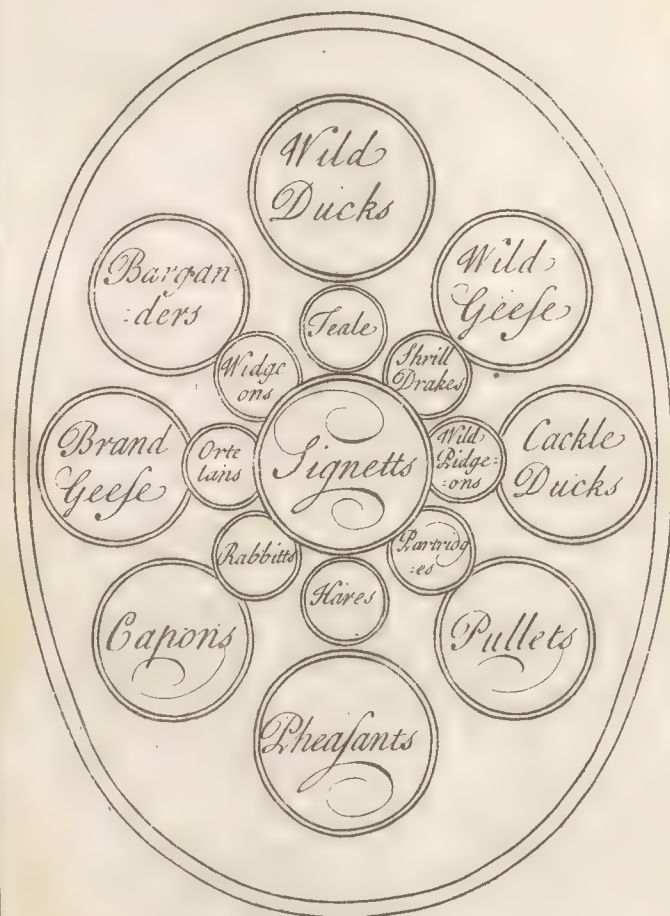 Wild
Ducks
Bargan
:ders
Wild
Geeſe
Teale
Widge
ons
Shrill
Drakes
Brand
Geeſe
Orte
lans
Signetts
Wild
Pidge=
:ons
Cackle
Ducks
Rabbitts
Partridg
:es
Hares
Capons
Pullets
Pheaſants